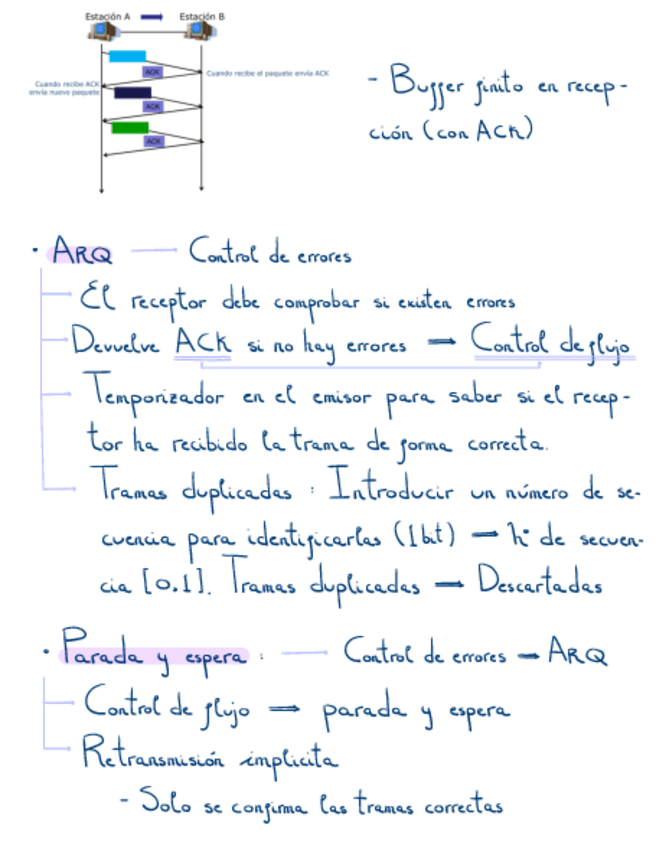 Estación A Estación B
ACK
Cuando recibe el paquete envía ACK
Cuando recibe ACK
envía nuevo paquete
ACK
ACK
- Buffer finito en recep-
ción (con ACK)
· ARQ — Control de errores
El receptor debe comprobar si existen errores
Devuelve ACK si no hay errores → Control de flujo
Temporizador en el emisor para saber si el recep-
tor ha recibido la trama de forma correcta.
Tramas duplicadas : Introducir un número de se-
cuencia para identificarlas (1 bit) — nº de secuen-
cia [0.1]. Tramas duplicadas — Descartadas
· Parada y espera : — Control de errores → ARQ
Control de flujo → parada y espera
Retransmisión implicita
- Solo se confirma las tramas correctas